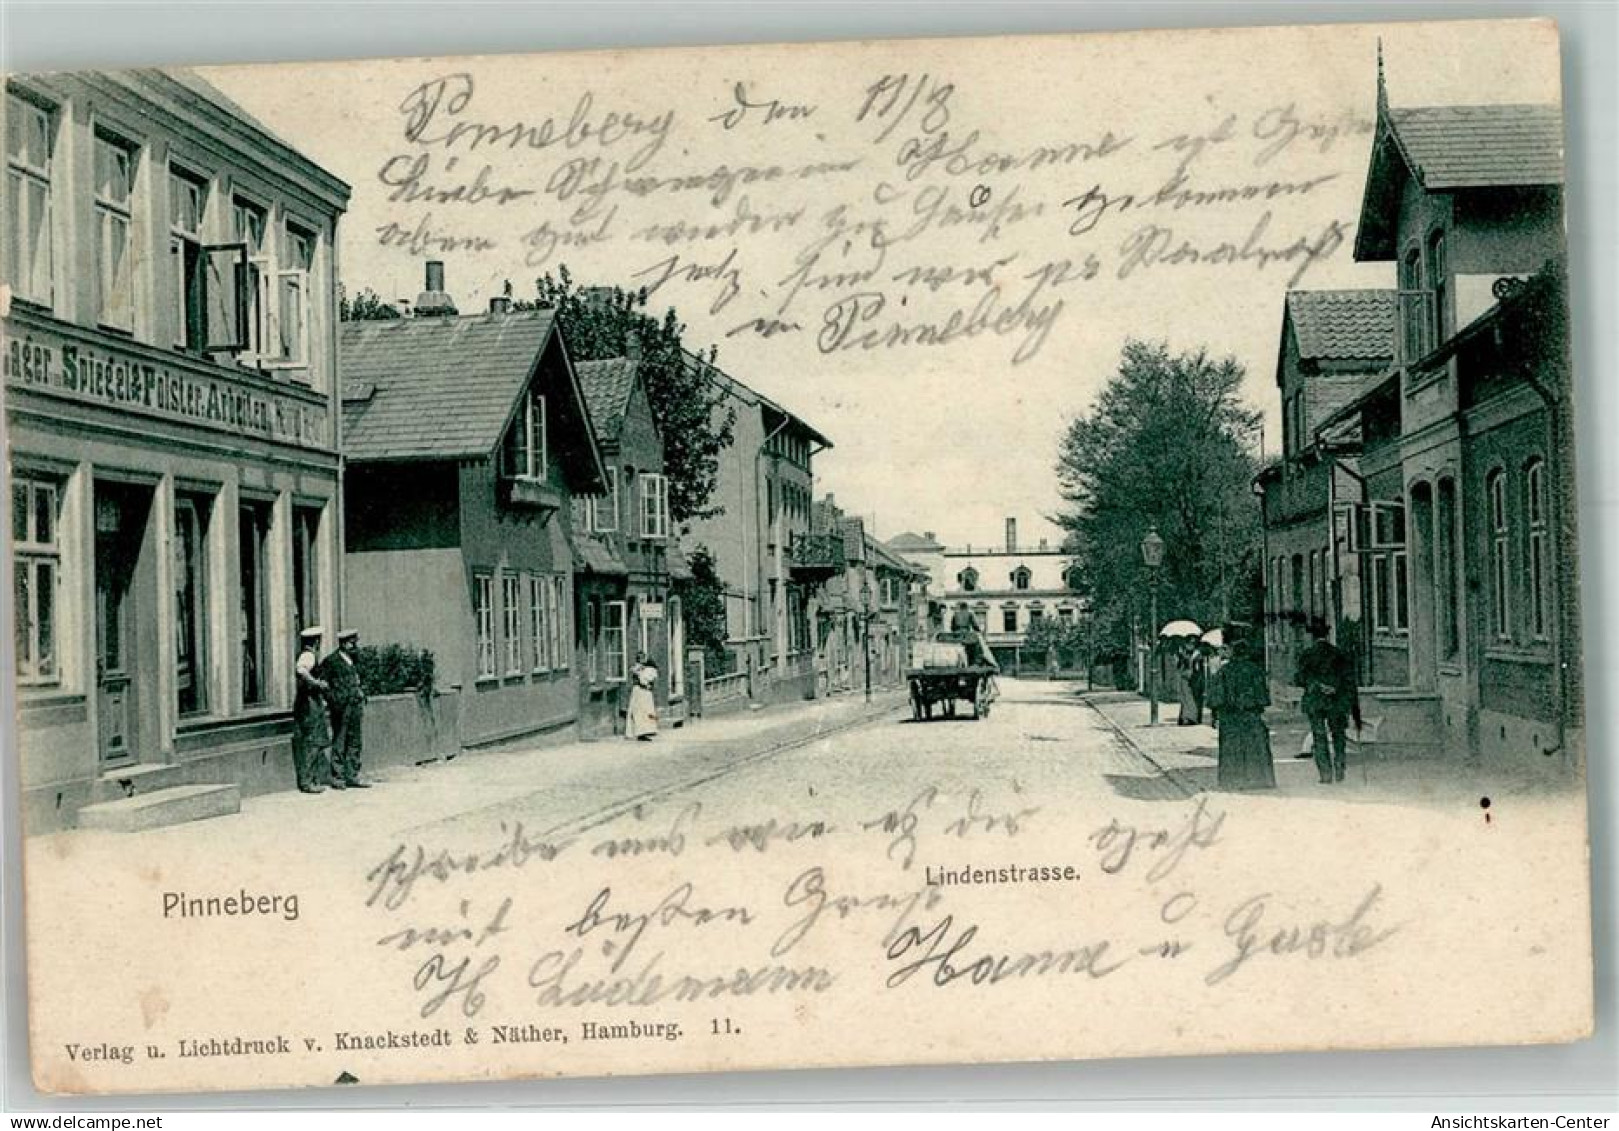 Pinneberg den 11/8
Liebe Schwiegerin Hanne ist Gestern
abem gut wieder zu Hause gekommen
jetz sind wir
in Pinneberg
Lager u. Spiegel & Polster-Arbeiten
schreibe uns wie es dir geht
Lindenstrasse.
Pinneberg
mit besten Gruß
H Lüdemann Hanne u Guste
Verlag u. Lichtdruck v. Knackstedt & Näther, Hamburg. 11.
www.delcampe.net/mike1962
Ansichtskarten-Center